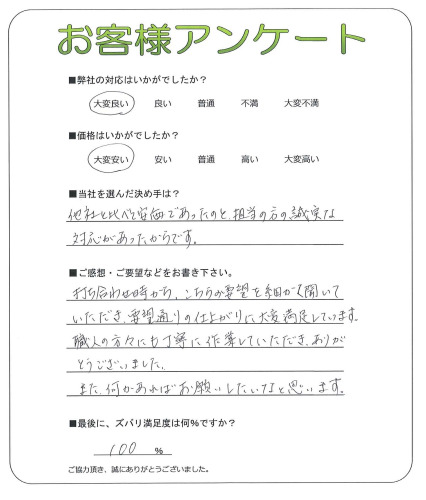 お客様アンケート
■弊社の対応はいかがでしたか？
大変良い 良い 普通 不満 大変不満
■価格はいかがでしたか？
大変安い 安い 普通 高い 大変高い
■当社を選んだ決め手は？
他社と比べて安価であったのと、担当の方の誠実な
対応があったからです。
■ご感想・ご要望などをお書き下さい。
打ち合わせ時から、こちらの要望を細かく聞いて
いただき、要望通りの仕上がりに大変満足しています。
職人の方々にも丁寧に作業していただき、ありが
とうございました。
また、何かあればお願いしたいなと思います。
■最後に、ズバリ満足度は何％ですか？
100 ％
ご協力頂き、誠にありがとうございました。